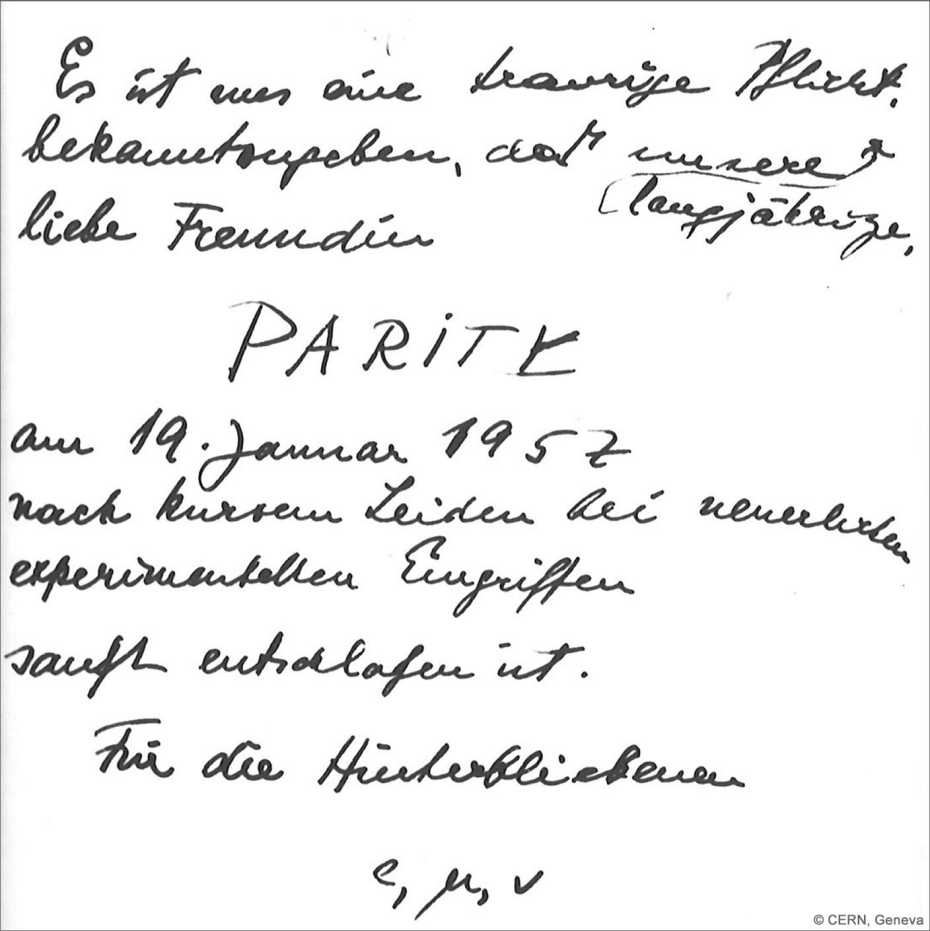 Es ist uns eine traurige Pflicht,
bekanntzugeben, daß unsere
langjährige,
liebe Freundin
PARITY
am 19. Januar 1957
nach kurzem Leiden bei neuerlichen
experimentellen Eingriffen
sanft entschlafen ist.
Für die Hinterbliebenen
e, μ, ν
© CERN, Geneva